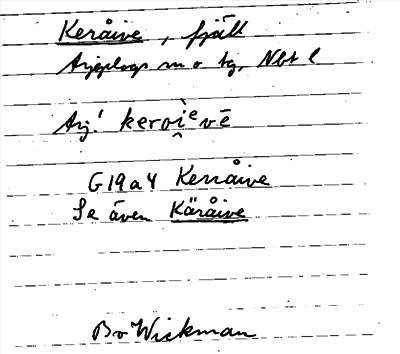 Keråive, fjäll
Arjeplogs sn o tg, Nbt l
Arj! keroi̯ᵉvē
G19a4 Kerråive
Se även Käråive
Bo Wickman